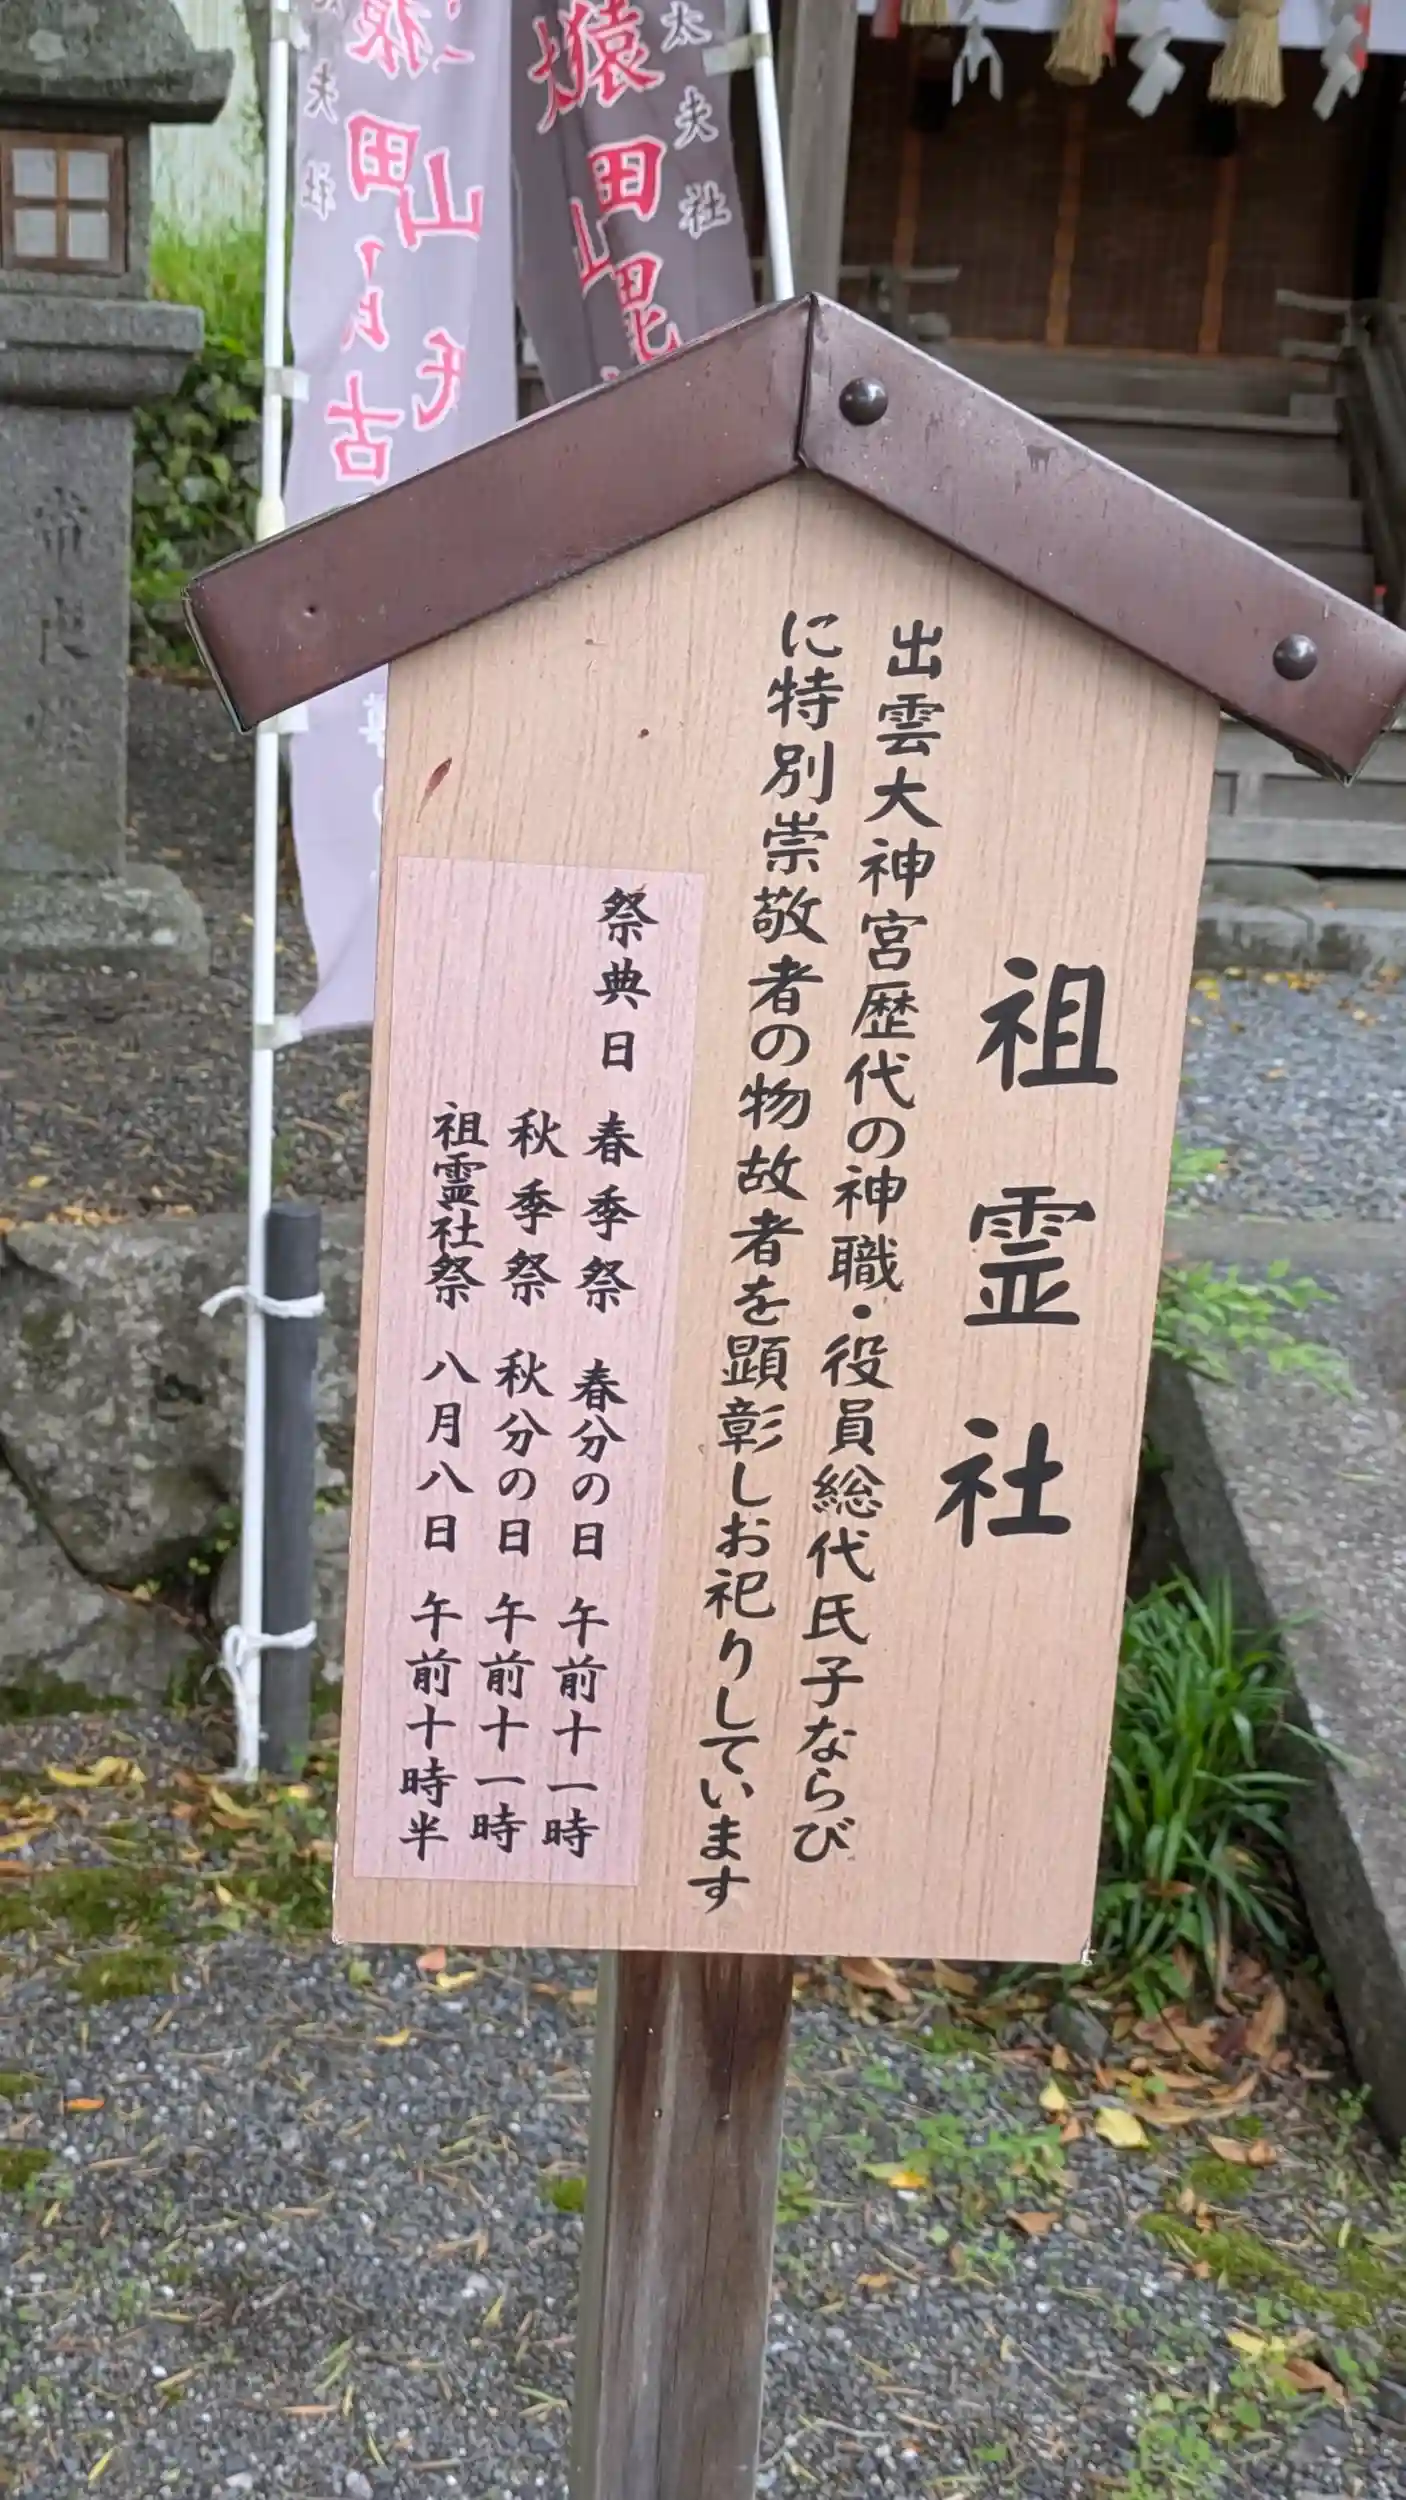 祖霊社
出雲大神宮歴代の神職・役員総代氏子ならび
に特別崇敬者の物故者を顕彰しお祀りしています
祭典日 春季祭 春分の日 午前十一時
秋季祭 秋分の日 午前十一時
祖霊社祭 八月八日 午前十時半
太夫社
猿田毘
山
夫社
猿田
山
古